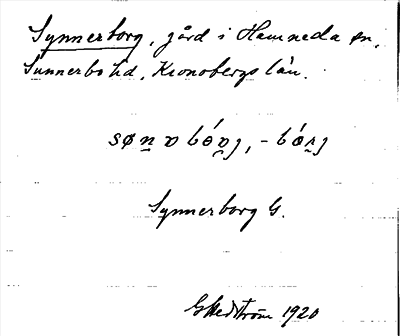 Synnerborg, gård i Hamneda sn,
Sunnerbo hd, Kronobergs län.
Synnerborg G.
G Hedström 1920